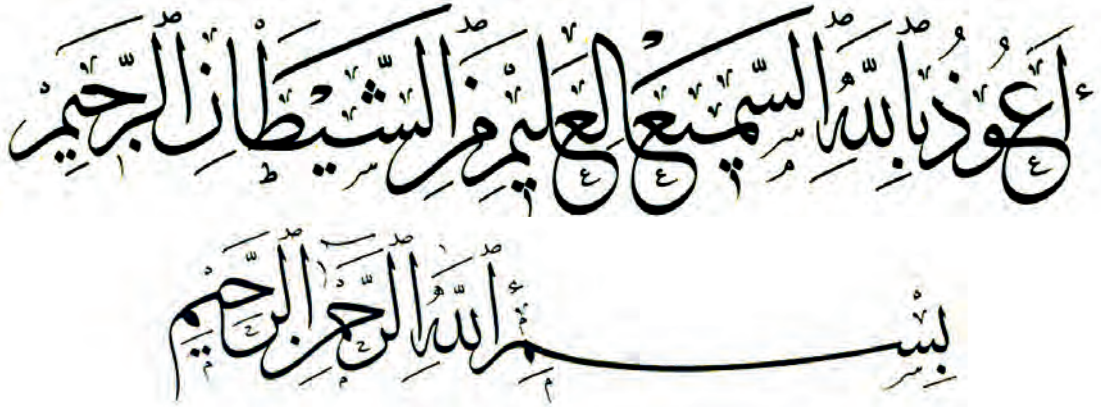 أَعُوذُ بِاللَّهِ السَّمِيعِ الْعَلِيمِ مِنَ الشَّيْطَانِ الرَّجِيمِ
بِسْمِ اللَّهِ الرَّحْمٰنِ الرَّحِيمِ